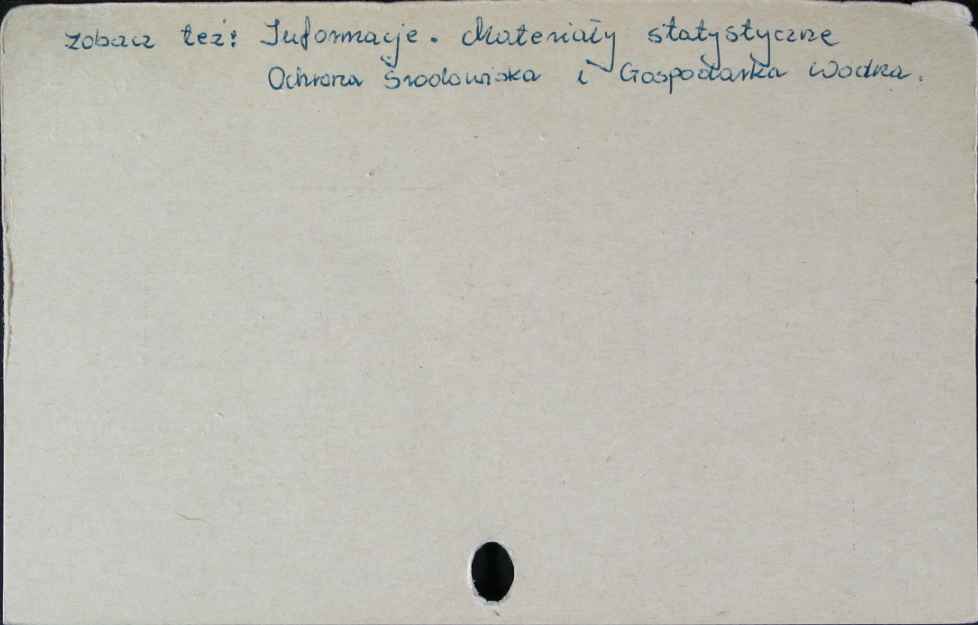 zobacz też: Informacje. Materiały statystyczne
Ochrona Środowiska i Gospodarka Wodna.